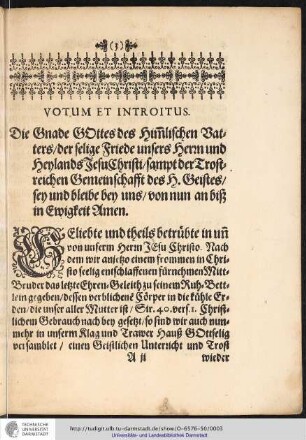 (3)
VOTUM ET INTROITUS.
Die Gnade GOttes des Him̃lischen Vat-
ters/der selige Friede unsers Herrn und
Heylands JEsu Christi/sampt der Trost-
reichen Gemeinschafft des H. Geistes/
sey und bleibe bey uns/von nun an biß
in Ewigkeit Amen.
GEliebte und theils betrübte in uñ
von unserm Herrn JEsu Christo. Nach
dem wir anjetzo einem frommen in Chri-
sto seelig entschlaffenen fürnehmen Mitt-
Bruder das letzte Ehren-Geleith zu seinem Ruh-Bett-
lein gegeben/dessen verblichene Cörper in die kühle Er-
den/die unser aller Mutter ist/Sir. 40. vers. 1. Christ-
lichem Gebrauch nach bey gesetzt/so sind wir auch nun-
mehr in unserm Klag und Trawer Hauß GOttselig
versamblet/einen Geistlichen Unterricht und Trost
A ij wieder
TECHNISCHE
UNIVERSITÄT
DARMSTADT
http://tudigit.ulb.tu-darmstadt.de/show/O-6576-50/0003
Universitäts- und Landesbibliothek Darmstadt